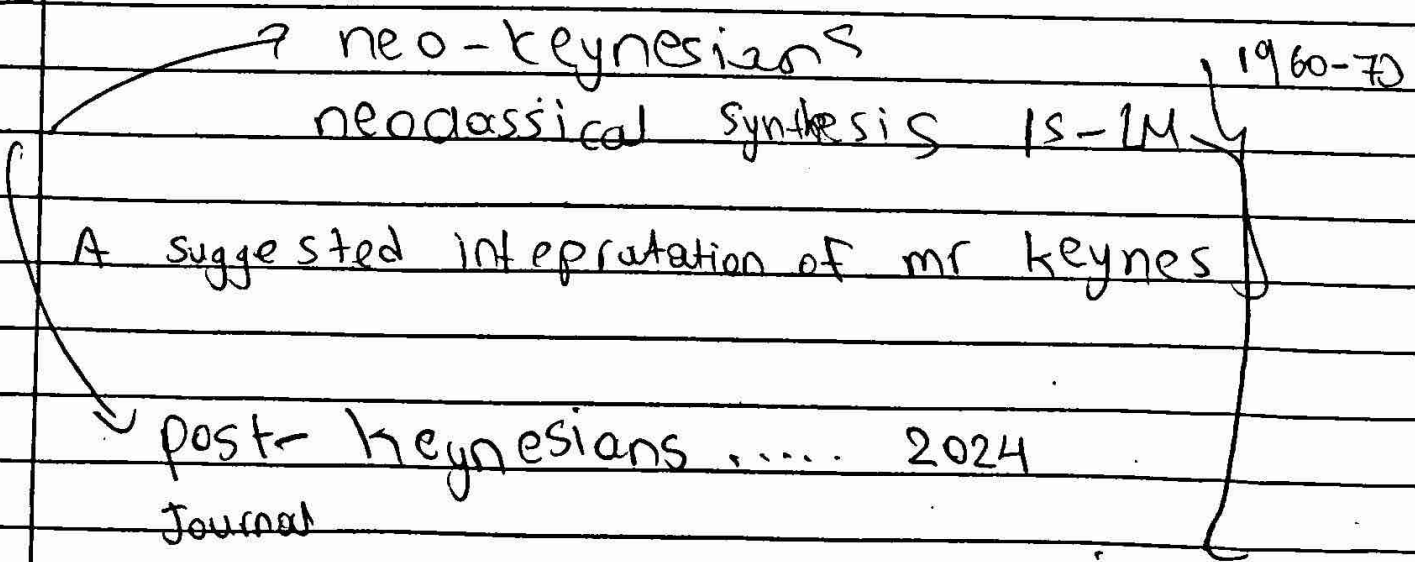 neo-keynesians
1960-70
neoclassical synthesis IS-LM
A suggested intepratation of mr keynes
post- keynesians ..... 2024
Journal